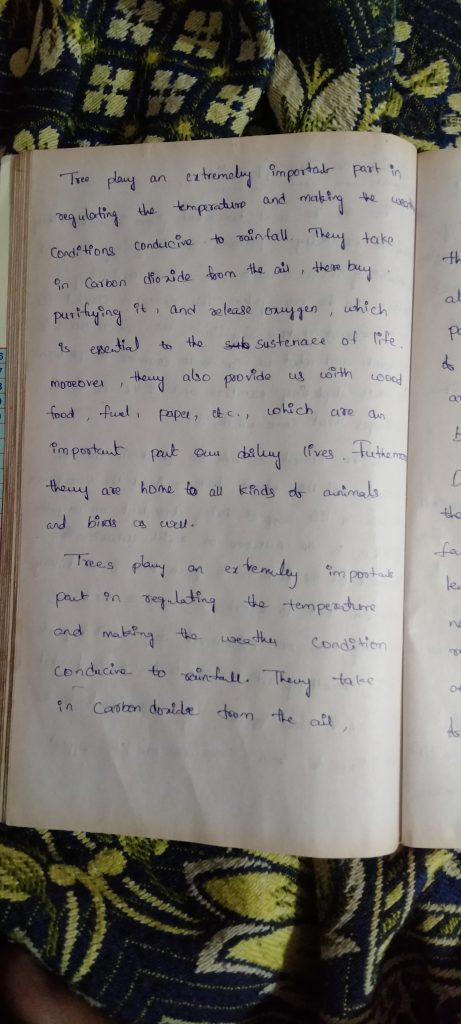 Tree play an extremely important part in
regulating the temperature and making the weath
Conditions conducive to rainfall. They take
in Carbon dioxide from the air, there buy
purifying it, and release oxygen, which
is essential to the sub sustenace of life.
moreover, they also provide us with wood,
food, fuel, paper, etc., which are an
important part our daley lives. Futhermo
they are home to all kinds of animals
and birds as well.
Trees play an extremley important
part in regulating the temperature
and making the weather condition
conducive to rainfall. They take
in Carbon doxide from the air,
th
al
po
of
a
the
fa
le
ne
of